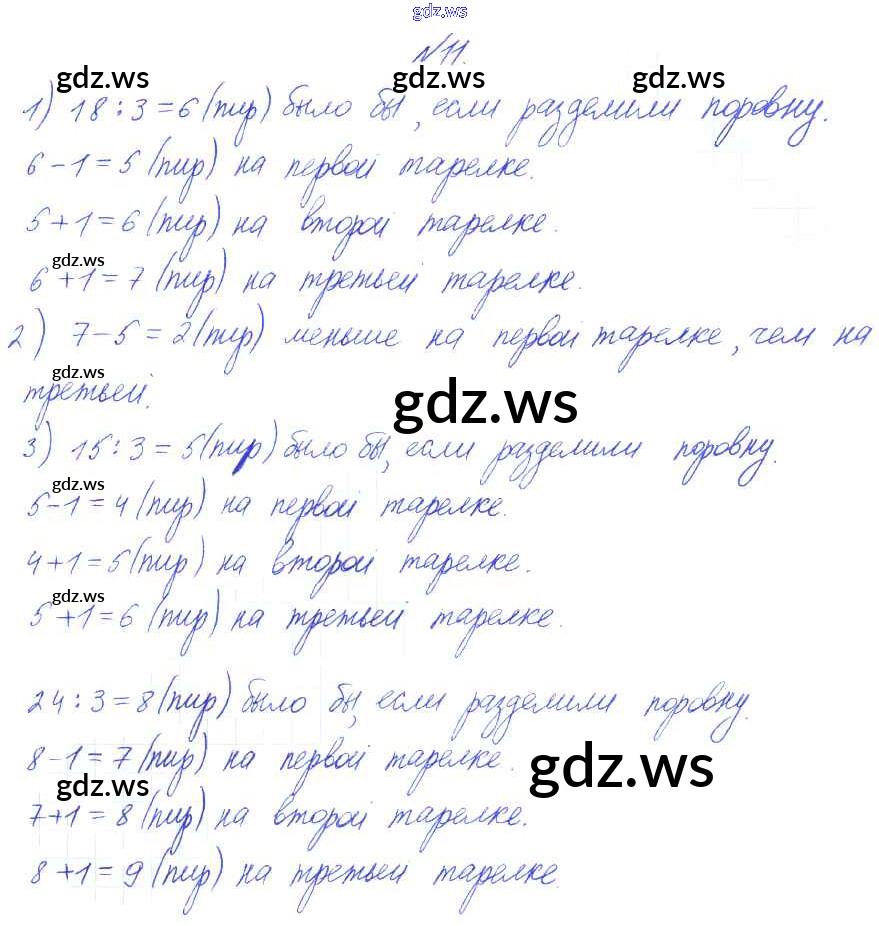 gdz.ws
№11.
gdz.ws gdz.ws
1) 18 : 3 = 6 (пир) было бы, если разделили поровну.
6 - 1 = 5 (пир) на первой тарелке.
5 + 1 = 6 (пир) на второй тарелке.
gdz.ws
6 + 1 = 7 (пир) на третьей тарелке.
2) 7 - 5 = 2 (пир) меньше на первой тарелке, чем на
gdz.ws
третьей.
gdz.ws
3) 15 : 3 = 5 (пир) было бы, если разделили поровну.
gdz.ws
5 - 1 = 4 (пир) на первой тарелке.
4 + 1 = 5 (пир) на второй тарелке.
gdz.ws
5 + 1 = 6 (пир) на третьей тарелке.
24 : 3 = 8 (пир) было бы, если разделили поровну.
8 - 1 = 7 (пир) на первой тарелке.
gdz.ws
gdz.ws
7 + 1 = 8 (пир) на второй тарелке.
8 + 1 = 9 (пир) на третьей тарелке.